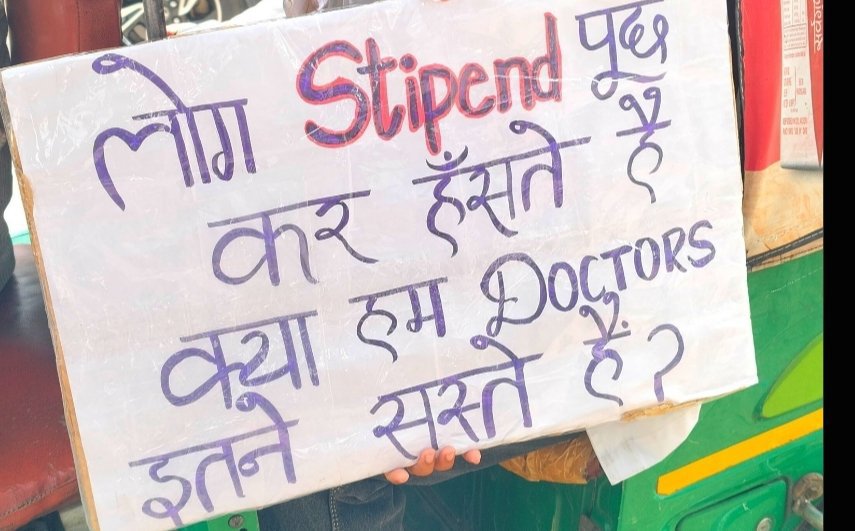 लोग Stipend पूछ
कर हँसते है
क्या हम DOCTORS
इतने सस्ते हैं?